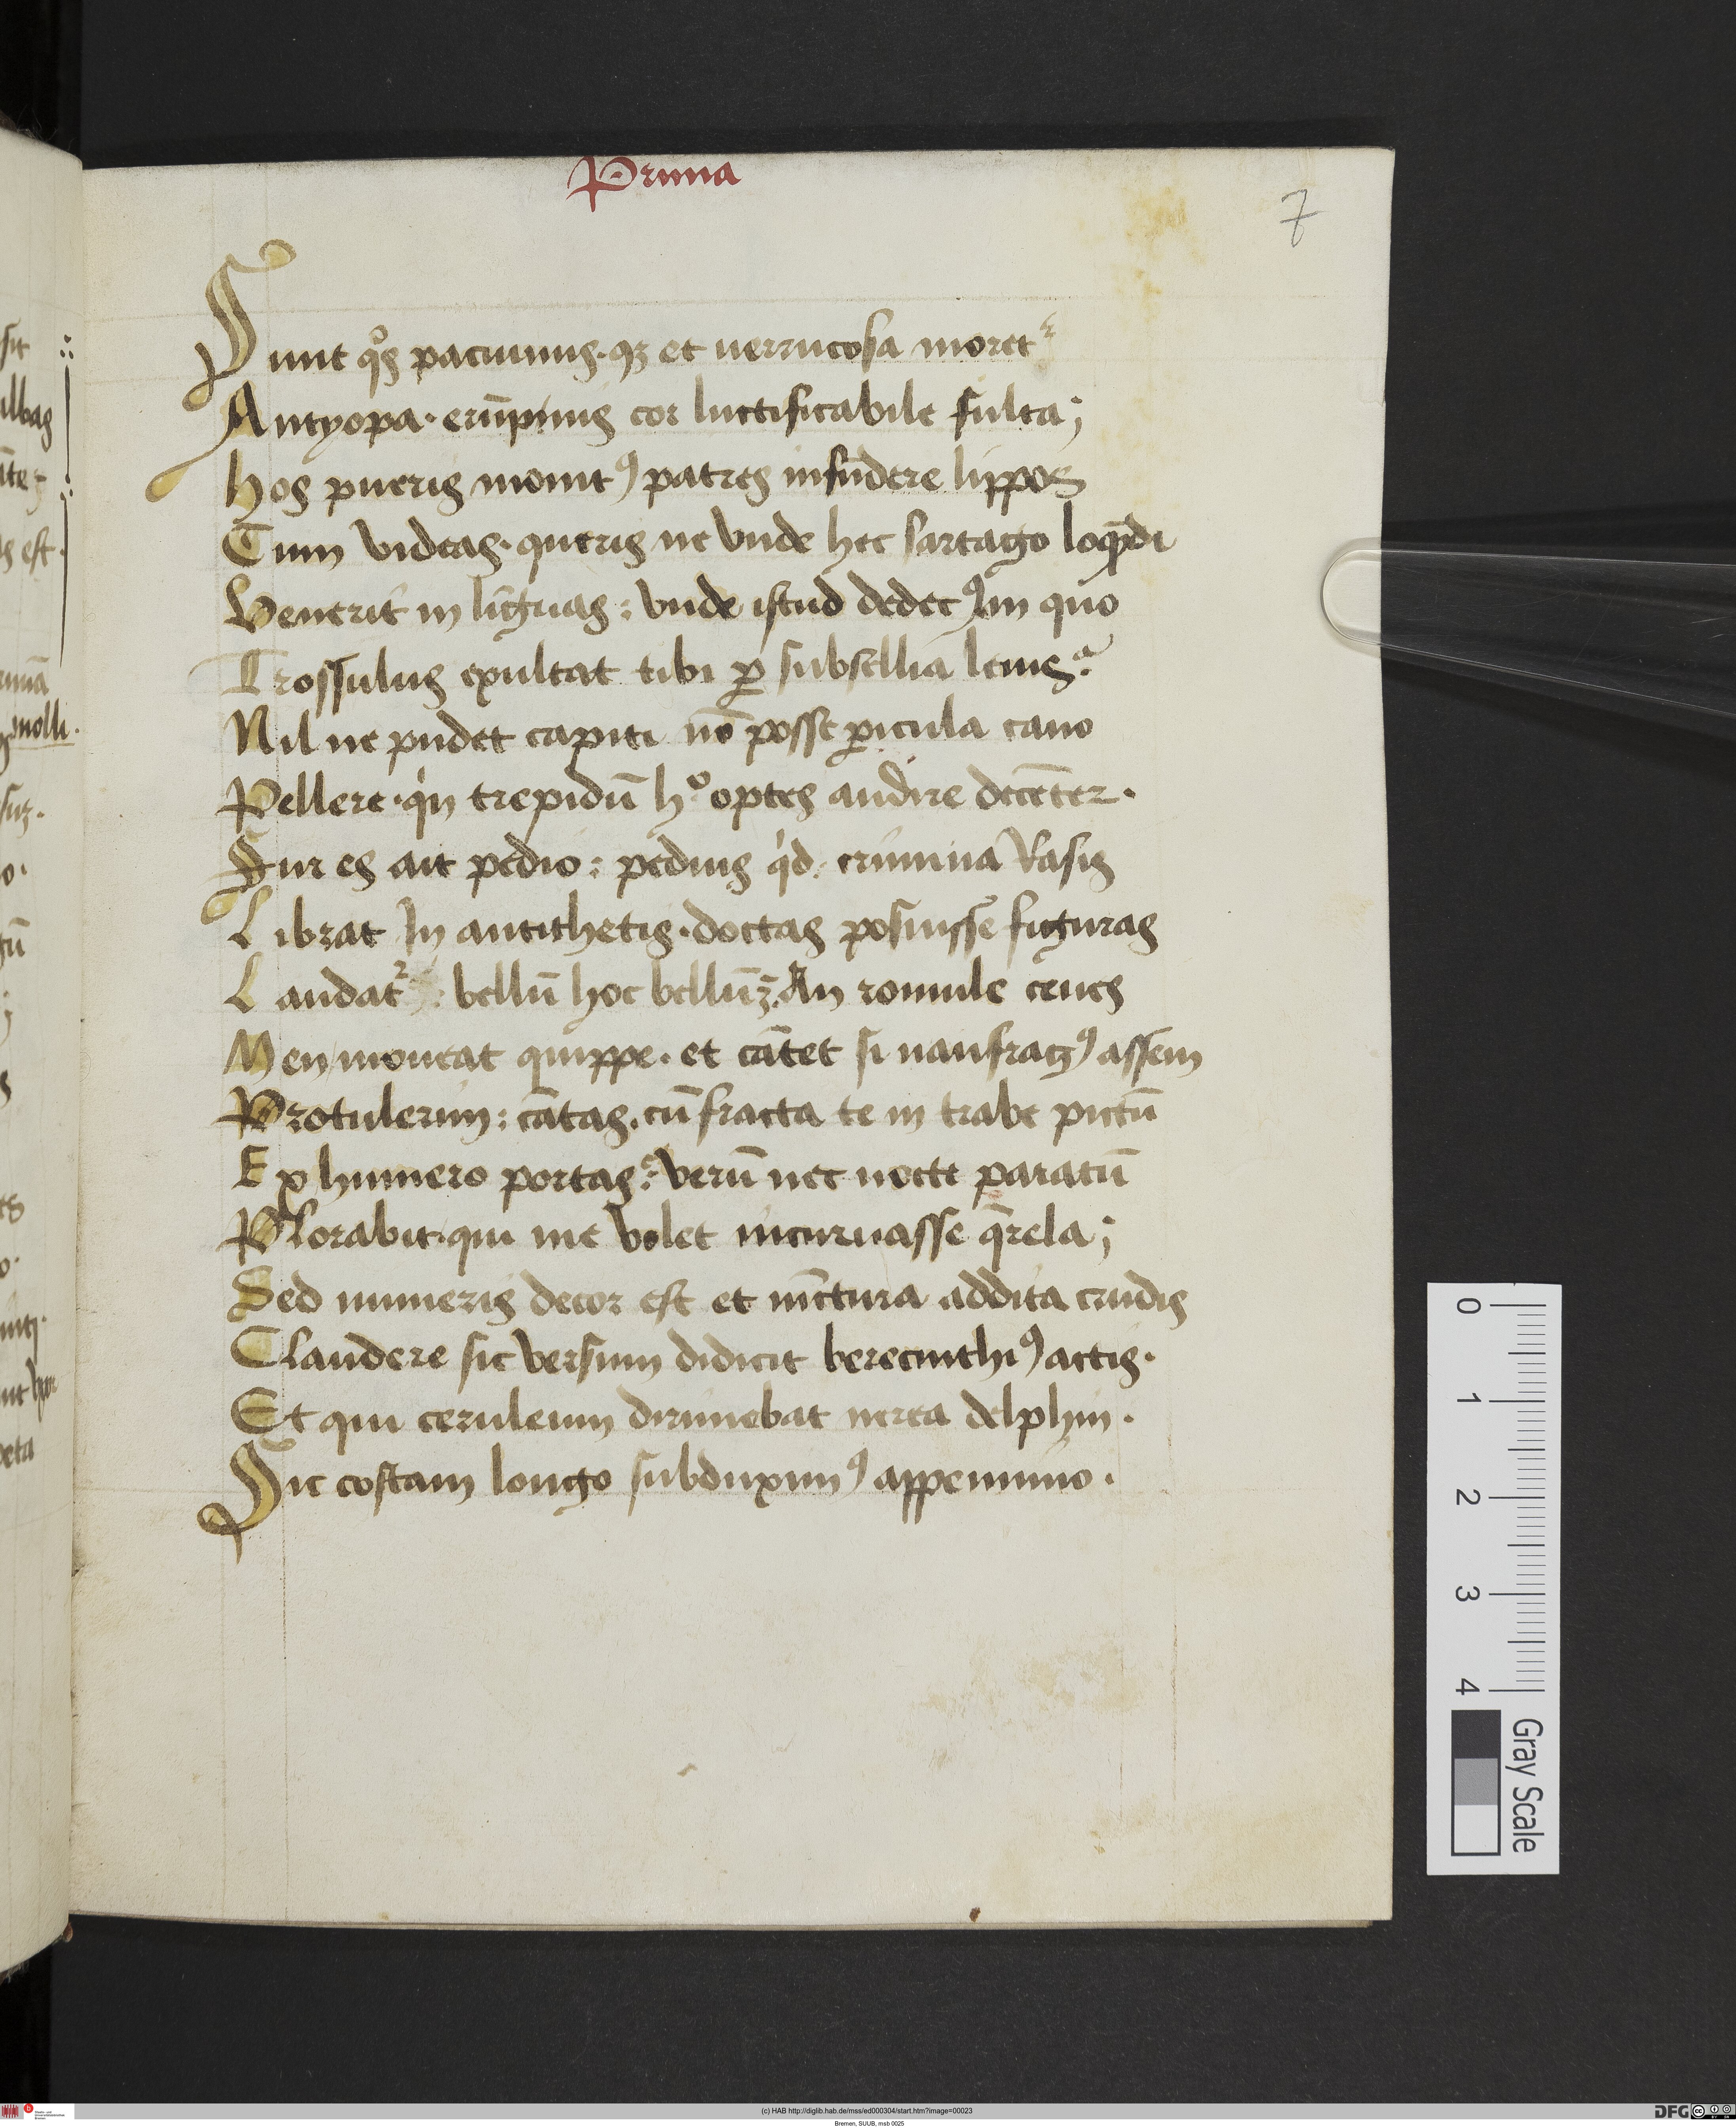 Prima
7
Sunt qos pacuuius. qz et uerrucosa moretr
Antyopa. erūpnis cor luctificabile fulta;
Hos pueris monitꝰ patres infūdere lippos
Cum videas. queris ne vnde hec sartago loqndi
Venerit in līguas: vnde istud dedecꝰ In quo
Trossulus exultat tibi ꝑ subsellia leuis?
Nil ne pudet capiti nō posse ꝑicula cano
Pellere. qin trepidū ho optes audire decēter.
Fur es ait pedio: pedius qid. crimina rasis
Librat In antithetis. doctas posuisse figuras
Laudatr: bellū hoc bellūꝫ. An romule ceues
Men moueat quippe. et cātet si naufragꝰ assem
Protulerim: cātas. cū fracta te in trabe pictū
Ex humero portas? verū nec nocte paratū
Plorabit. qui me volet incuruasse qrela;
Sed numeris decor est et iūctura addita crudis
Claudere sic versum didicit berecinthiꝰ actis.
Et qui ceruleum dirimebat nerea delphin.
Sic costam longo subduximꝰ appennino.
sit
albas
s est.
molli.
o.
s
o.
0
1
2
3
4
Gray Scale
(c) HAB http://diglib.hab.de/mss/ed000304/start.htm?image=00023
Bremen, SUUB, msb 0025
DFG